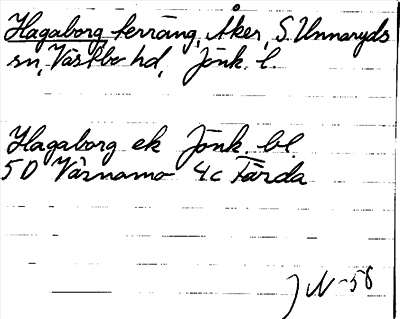 Hagaborg terräng, Åker, S. Unnaryds
sn, Västbo hd, Jönk. l.
Hagaborg ek Jönk. bl.
5D Värnamo 4c Färda
JN-58